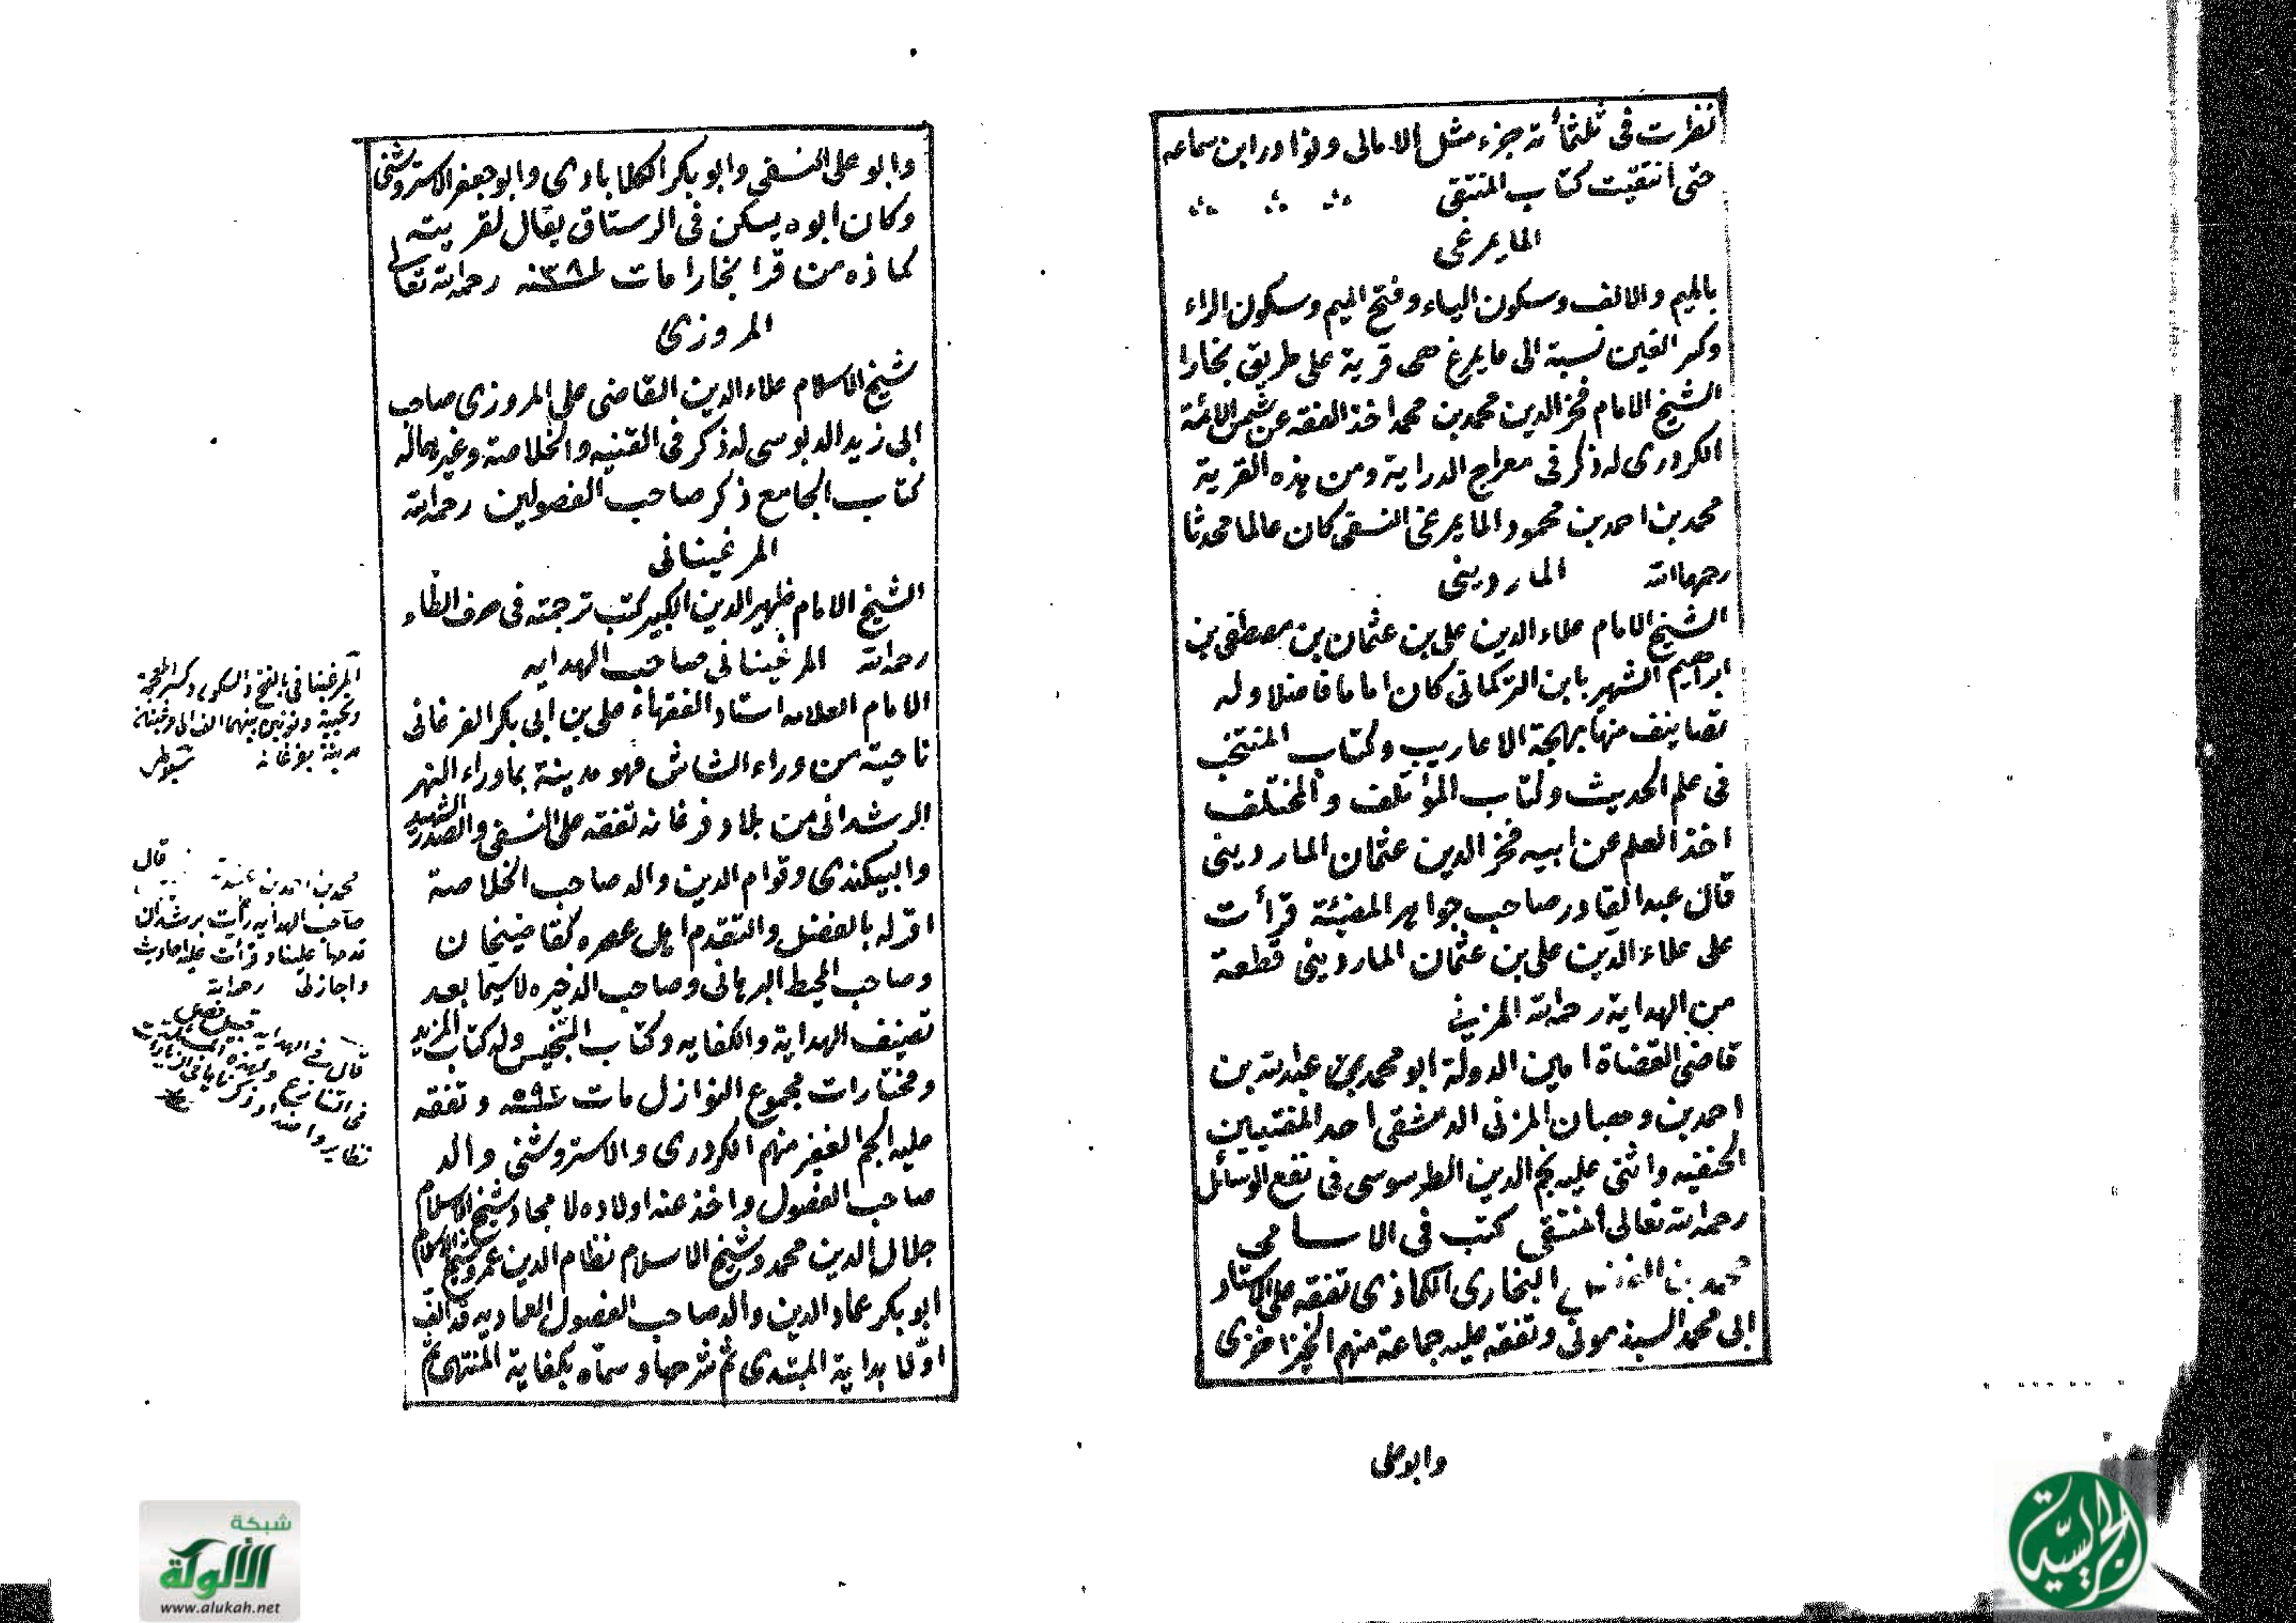 نظرت فى ثلثمأ ته جزء مثل الامالى ونوادر ابن سماعه
حتى انتقيت كتاب المنتقى
المايمرغى
بالميم والالف وسكون الياء وفتح الميم وسكون الراء
وكسر الغين نسبة الى مايمرغ هى قرية على طريق بخارا
الشيخ الامام فخر الدين محمد بن محمد اخذ الفقه عن شمس الائمة
الكردرى له ذكر فى معراج الدراية ومن هذه القرية
محمد بن احمد بن محمود المايمرغى النسفى كان عالما محدثا
رحمهما الله الماردينى
الشيخ الامام علاء الدين على بن عثمان بن مصطفى بن
ابراهيم الشهير بابن التركمانى كان اماما فاضلا وله
تصانيف منها بهجة الاعاريب وكتاب المنتخب
فى علم الحديث وكتاب المؤتلف والمختلف
اخذ العلم عن ابيه فخر الدين عثمان الماردينى
قال عبد القادر صاحب جواهر المضيئة قرأت
على علاء الدين على بن عثمان الماردينى قطعة
من الهداية رحمه الله المزنى
قاضى القضاة امين الدولة ابو محمد عبد الله بن
احمد بن وهبان المزنى الدمشقى احد المفتيين
الحنفيه واثنى عليه نجم الدين الطرسوسى فى نفع الوسائل
رحمه الله تعالى المنتقى كتب فى الاسامى
محمد بن البخارى الكماذى تفقه على الاستاد
ابى محمد السبذمونى وتفقه عليه جماعة منهم الخيزاخزى
وابو على
وابو على النسفى وابو بكر الكلابادى وابو جعفر الاستروشنى
وكان ابوه يسكن فى الرستاق يقال لقريته
كماذه من قرا بخارا مات سنه رحمه الله تعالى
المروزى
شيخ الاسلام علاء الدين القاضى على المروزى صاحب
ابى زيد الدبوسى له ذكر فى القنيه والخلاصة وغيرهما له
كتاب الجامع ذكر صاحب الفصولين رحمه الله
المرغينانى
الشيخ الامام ظهير الدين الكبير كتب ترجمته فى حرف الظاء
رحمه الله المرغينانى صاحب الهدايه
الامام العلامه استاد الفقهاء على بن ابى بكر الفرغانى
ناحية من وراء الشاش فهو مدينة بماوراء النهر
الرشدانى من بلاد فرغانه تفقه على النسفى والصدر الشهيد
والبيكندى وقوام الدين والد صاحب الخلاصة
اقر له بالفضل والتقدم اهل عصره كقاضيخان
وصاحب المحيط البرهانى وصاحب الذخيره لاسيما بعد
تصنيف الهداية والكفايه وكتاب التجنيس وله كتاب المزيد
ومختارات مجموع النوازل مات وتفقه
عليه الجم الغفير منهم الكردرى والاستروشنى والد
صاحب الفصول واخذ عنه اولاده الامجاد شيخ الاسلام
جلال الدين محمد وشيخ الاسلام نظام الدين عمر وشيخ الاسلام
ابو بكر عماد الدين والد صاحب الفصول العماديه قد الف
اولا بداية المبتدى ثم شرحها وسماه بكفاية المنتهى ثم
المرغينانى بالفتح والسكون وكسر المعجمة
وتحتية ونونين بينهما الف الى مرغينان
مدينة بفرغانه سيوطى
محمد بن احمد بن قال
صاحب الهدايه برشدان
قدمها علينا وقرأت عليه احاديث
واجازلى رحمه الله
قال فى الهدايه
شبكة
الألوكة
www.alukah.net